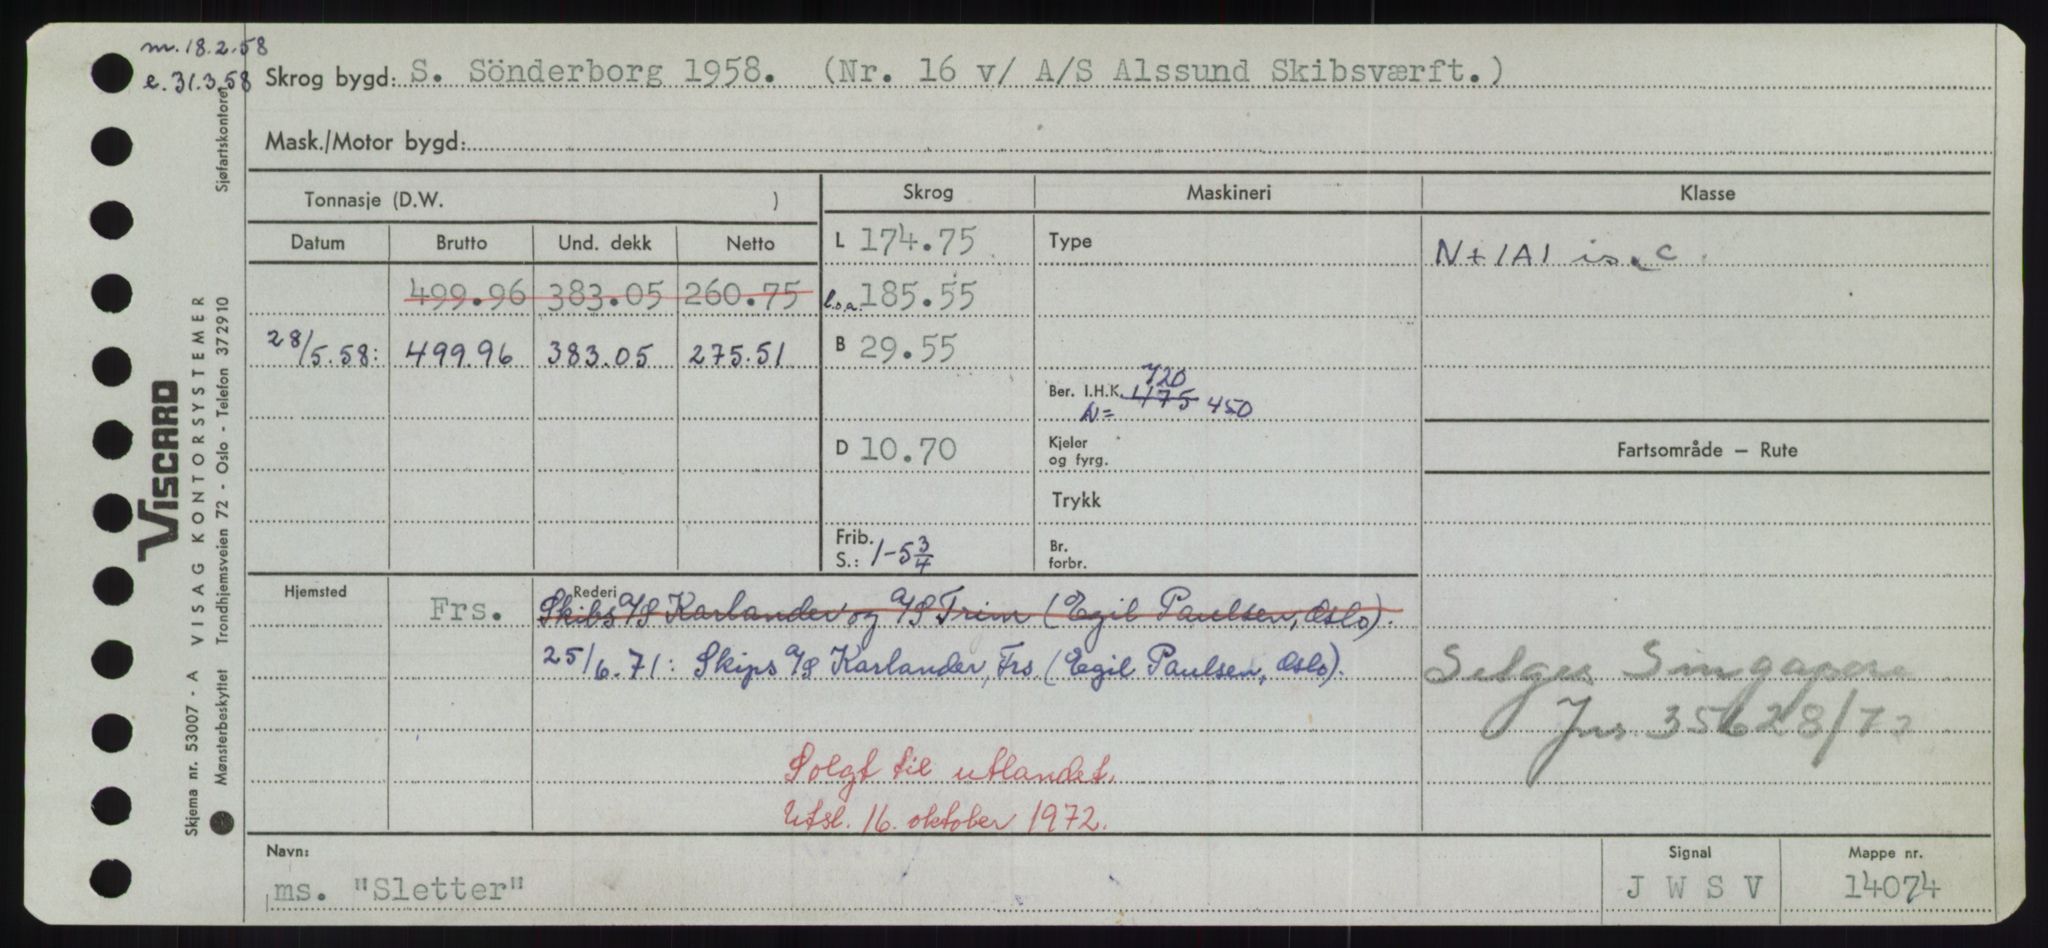 m. 18.2.58
e. 31.3.58
Skrog bygd: S. Sönderborg 1958. (Nr. 16 v/ A/S Alssund Skibsværft.)
Mask./Motor bygd:
Tonnasje (D.W. )
Skrog
Maskineri
Klasse
Datum
Brutto
Und. dekk
Netto
L 174.75
Type
N + 1A1 is C
499.96 383.05 260.75
l.o.a. 185.55
28/5.58: 499.96 383.05 275.51
B 29.55
Ber. I.H.K. 475 720
N = 450
D 10.70
Kjeler
og fyrg.
Fartsområde — Rute
Trykk
Frib.
S.: 1-5 3/4
Br.
forbr.
Hjemsted
Rederi
Frs.
Skibs A/S Karlander og A/S Trim (Egil Paulsen, Oslo).
25/6.71: Skips A/S Karlander, Frs (Egil Paulsen, Oslo).
Selges Singapore
Jnr 35628/72
Solgt til utlandet.
Utsl. 16. oktober 1972.
Navn:
ms. "Sletter"
Signal
J W S V
Mappe nr.
14074
VISCARD
Skjema nr. 53007 - A VISAG KONTORSYSTEMER
Mønsterbeskyttet Trondhjemsveien 72 - Oslo - Telefon 372910 Sjøfartskontoret